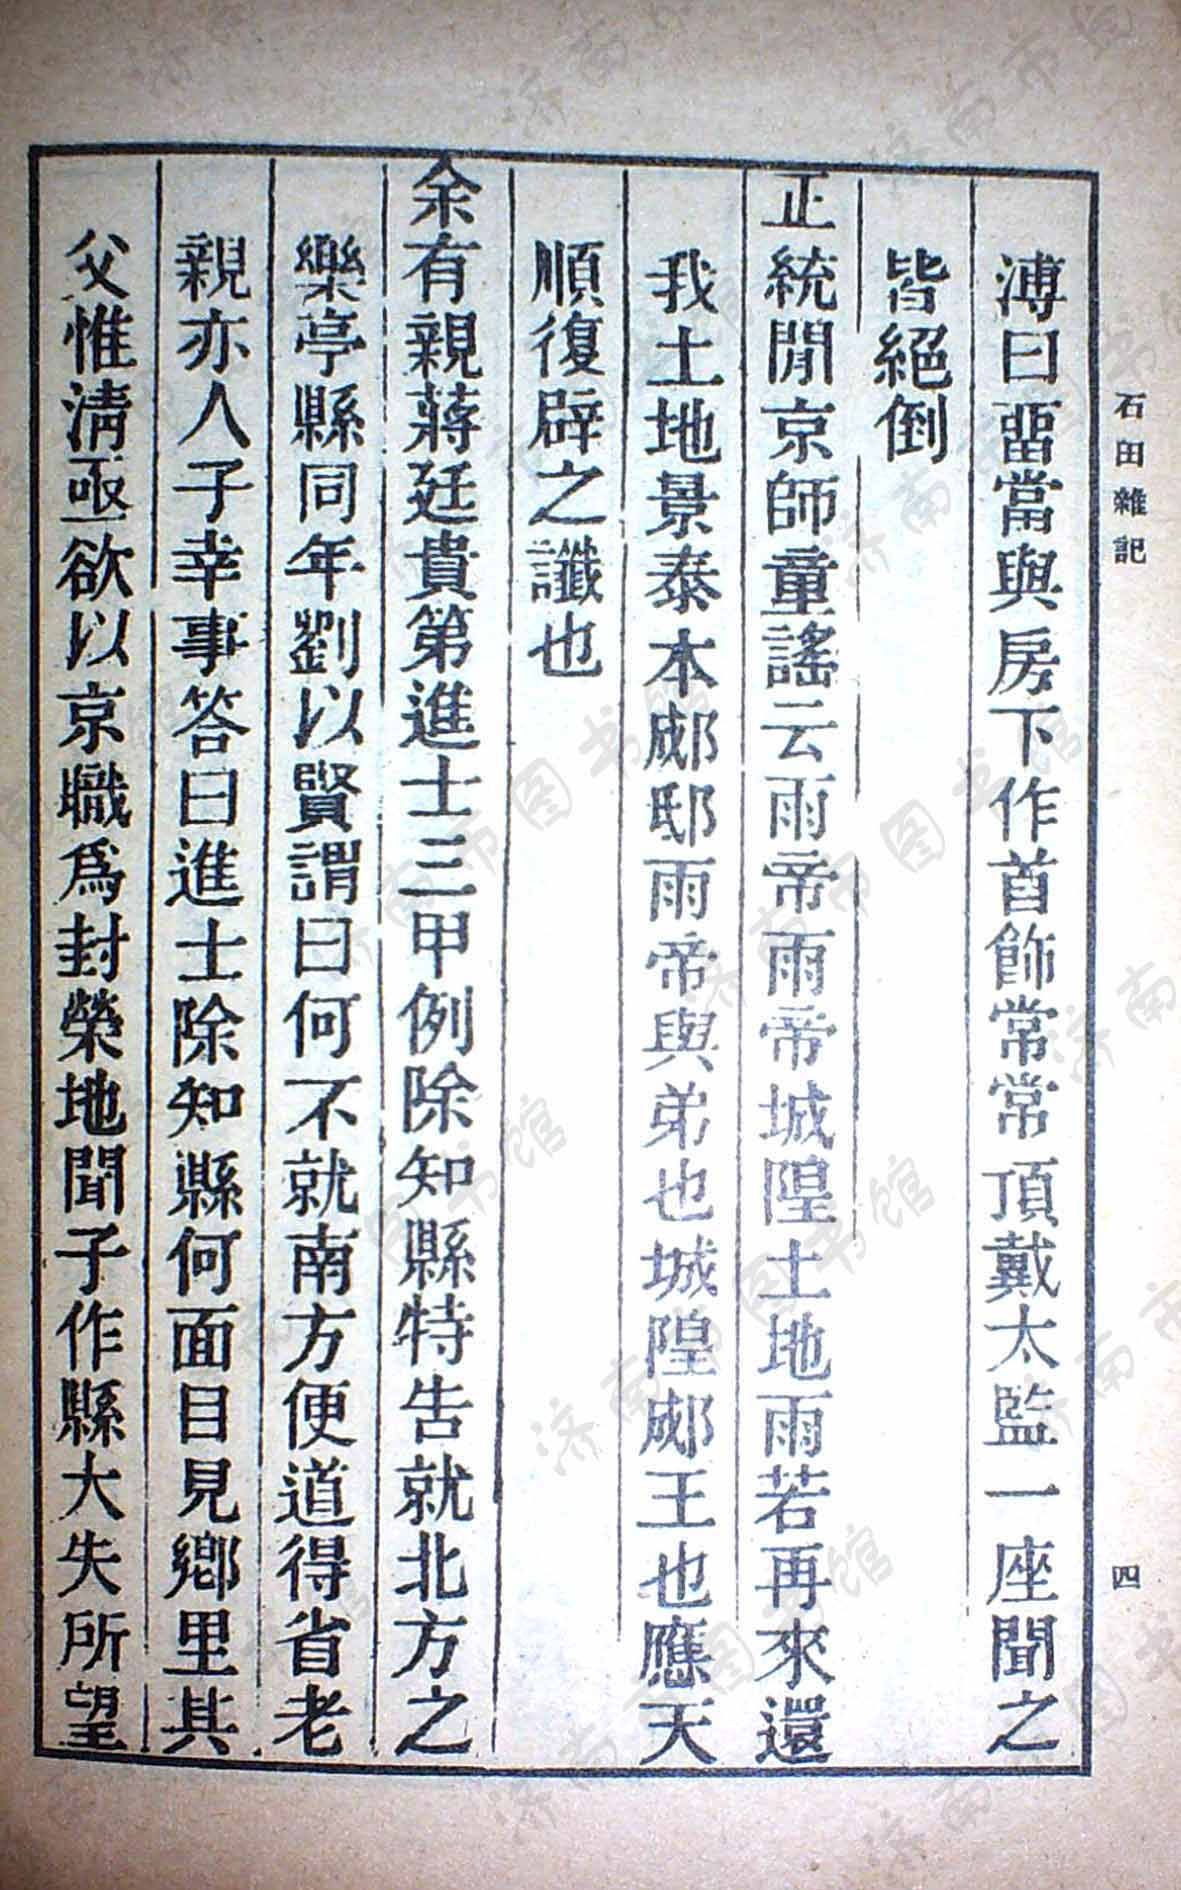 石田雜記
四
溥曰畱當與房下作首飾常常頂戴太監一座聞之
皆絕倒
正統閒京師童謠云雨帝雨帝城隍土地雨若再來還
我土地景泰本郕邸雨帝與弟也城隍郕王也應天
順復辟之讖也
余有親蔣廷貴第進士三甲例除知縣特告就北方之
樂亭縣同年劉以賢謂曰何不就南方便道得省老
親亦人子幸事答曰進士除知縣何面目見鄉里其
父惟清亟欲以京職爲封榮地聞子作縣大失所望
济南市图书馆